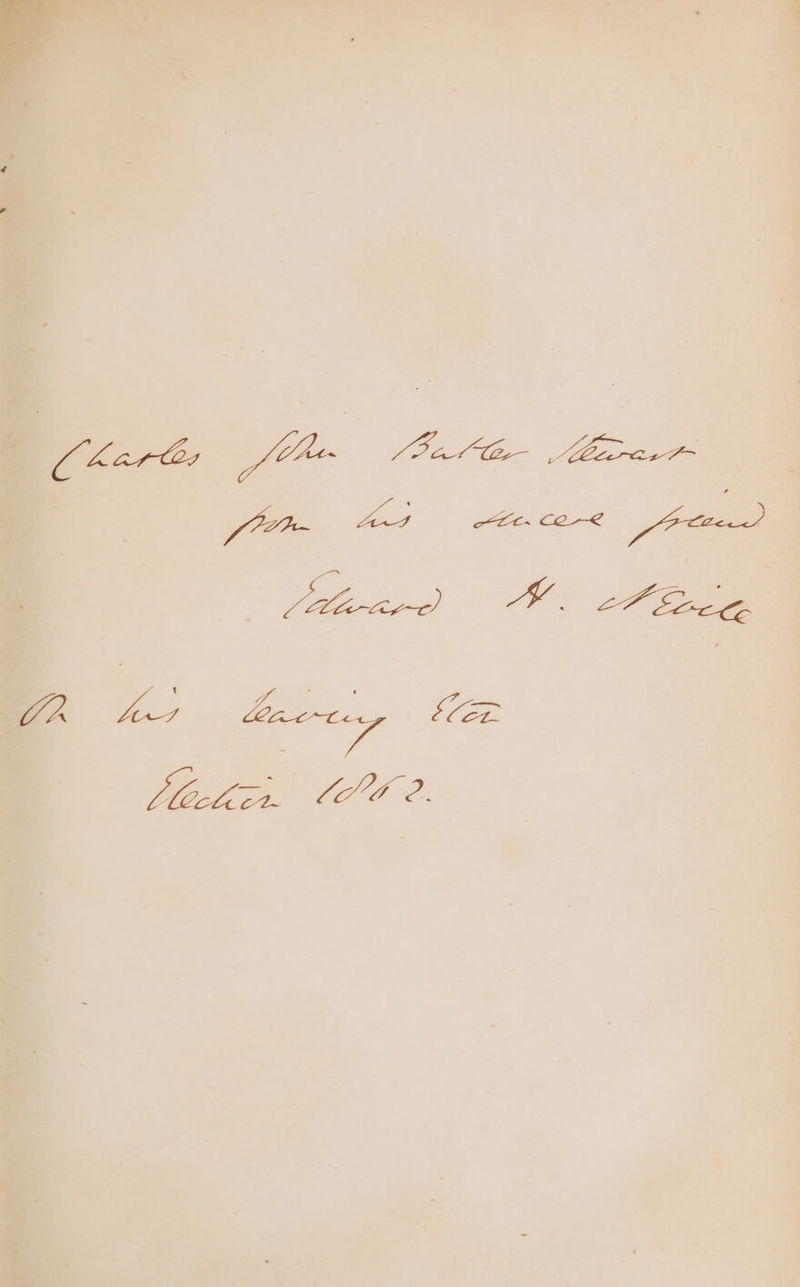 Charles John Butler Stewart
from his sincere friend
Edward H.
On his leaving Eton
Election 1862.